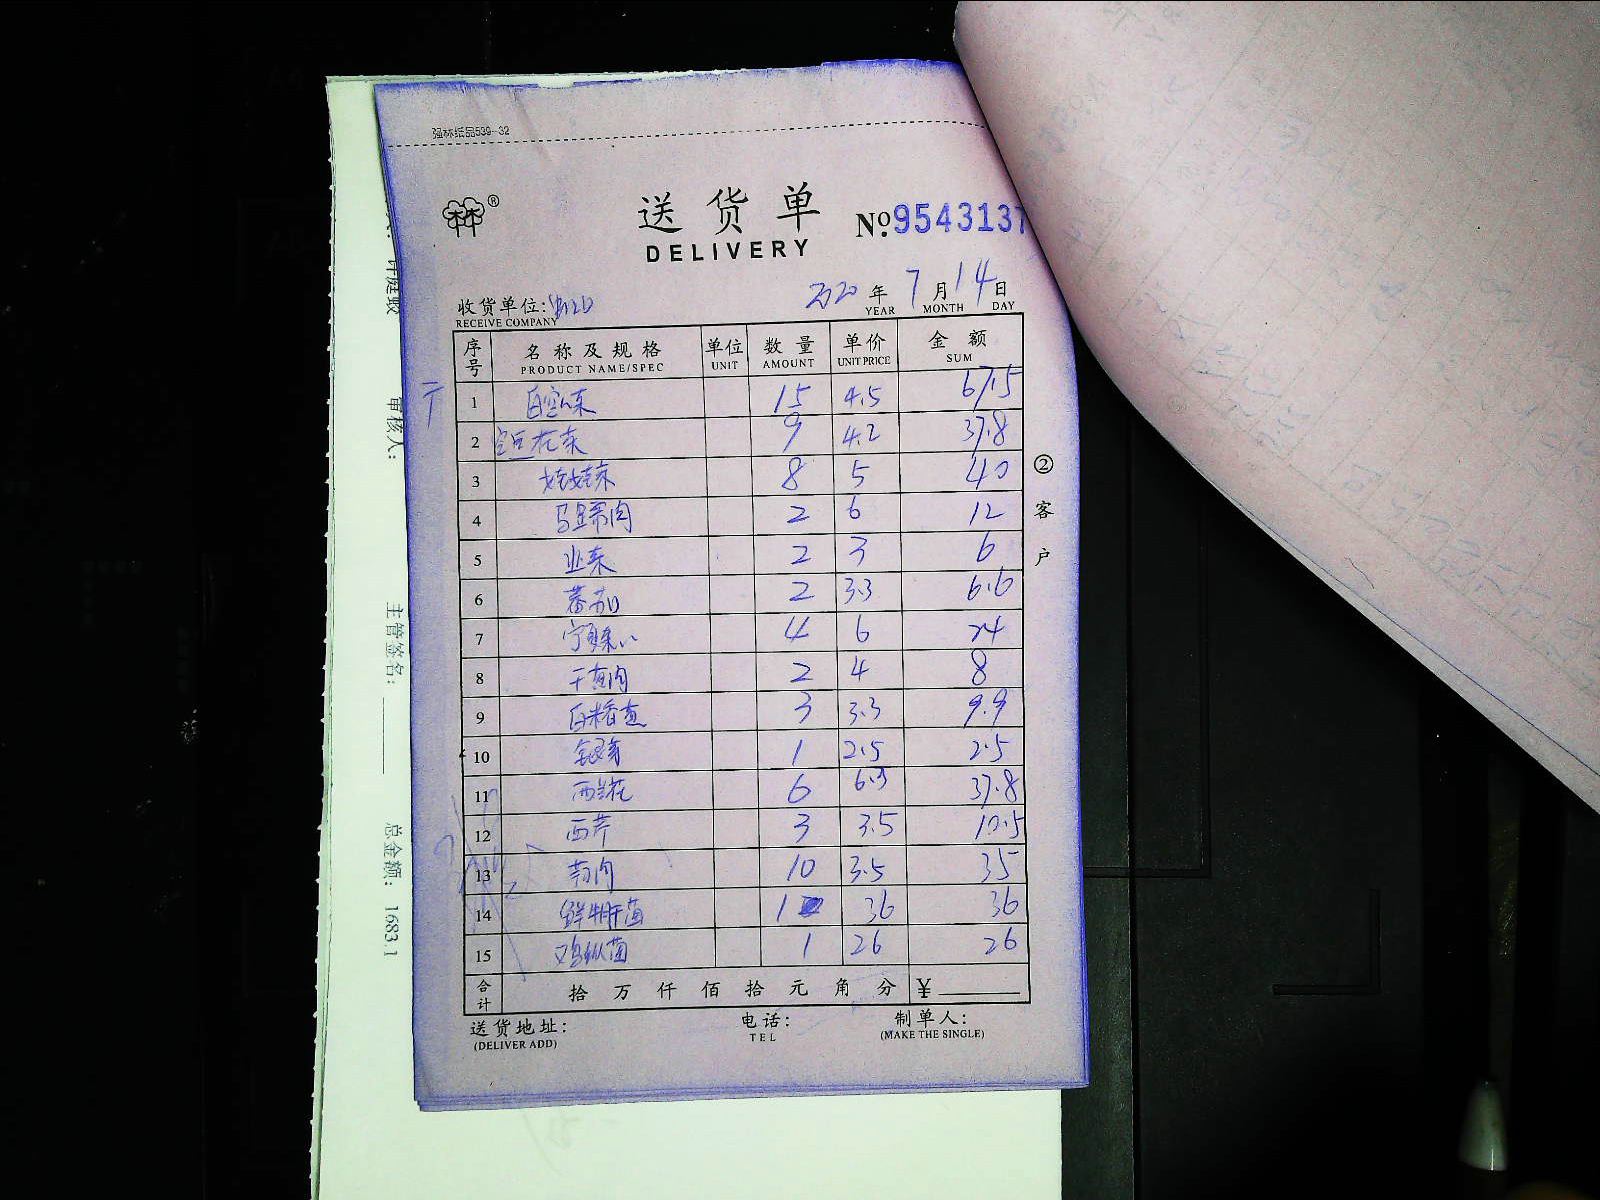 强林纸品539-32
林林®
送货单
DELIVERY
№ 9543137
2020年 7月 14日
YEAR MONTH DAY
收货单位:
RECEIVE COMPANY
序号 名称及规格 单位 数量 单价 金额
PRODUCT NAME/SPEC UNIT AMOUNT UNIT PRICE SUM
1 15 4.5 67.5
2 花菜 9 4.2 37.8
3 娃娃菜 8 5 40
4 马蹄肉 2 6 12
5 2 3 6
6 番茄 2 3.3 6.6
7 4 6 24
8 2 4 8
9 3 3.3 9.9
10 银芽 1 2.5 2.5
11 西兰花 6 6.3 37.8
12 西芹 3 3.5 10.5
13 10 3.5 35
14 鲜牛肝菌 1 36 36
15 鸡枞菌 1 26 26
合计 拾万仟佰拾元角分 ¥
送货地址: 电话: 制单人:
(DELIVER ADD) TEL (MAKE THE SINGLE)
②客户
审核人:
主管签名:
总金额: 1683.1